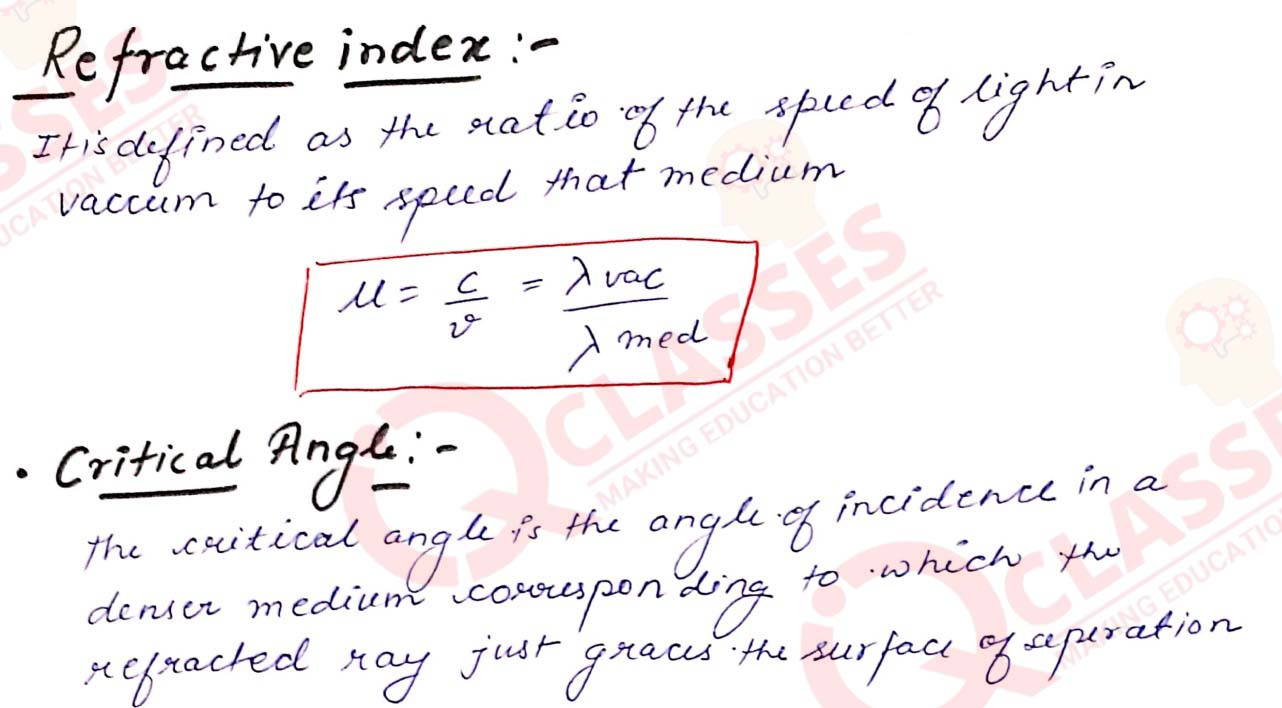 Refractive index :-
It is defined as the ratio of the speed of light in
vaccum to its speed that medium
μ = c/v = λ vac / λ med
• Critical Angle :-
the critical angle is the angle of incidence in a
denser medium corresponding to which the
refracted ray just graces the surface of seperation
SES
UCATION BETTER
IQ CLASSES
MAKING EDUCATION BETTER
IQ CLASSES
MAKING EDUCATION